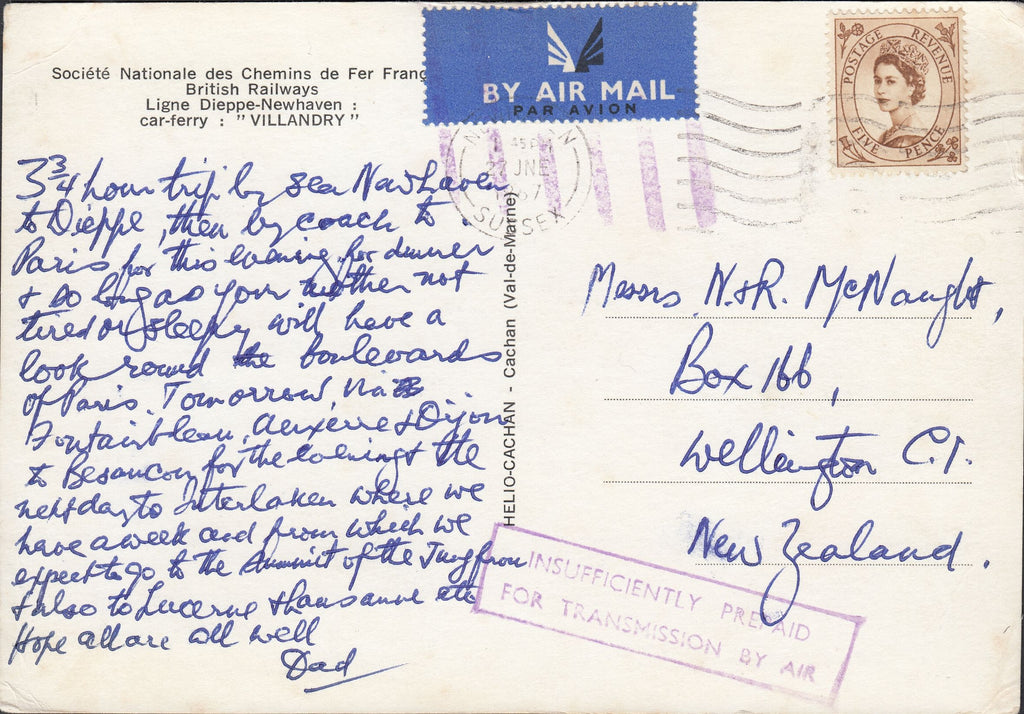 Société Nationale des Chemins de Fer Franç
British Railways
Ligne Dieppe-Newhaven :
car-ferry : " VILLANDRY "
BY AIR MAIL
PAR AVION
POSTAGE REVENUE
FIVE PENCE
45 PM
27 JNE
1967
SUSSEX
3¾ hour trip by sea Newhaven
to Dieppe, then by coach to
Paris for this evening, for dinner
& so long as your mother not
tired or sleepy will have a
look round the boulevards
of Paris. Tomorrow, via
Fontainbleau, Auxerre & Dijon
to Besancon for the evening & the
next day to Interlaken where we
have a week and from which we
expect to go to the summit of the Jungfrau
& also to Lucerne & Lausanne etc
Hope all are well
Dad
HELIO-CACHAN - Cachan (Val-de-Marne)
Messrs N. & R. McNaught,
Box 166,
Wellington C.1.
New Zealand.
INSUFFICIENTLY PREPAID
FOR TRANSMISSION BY AIR